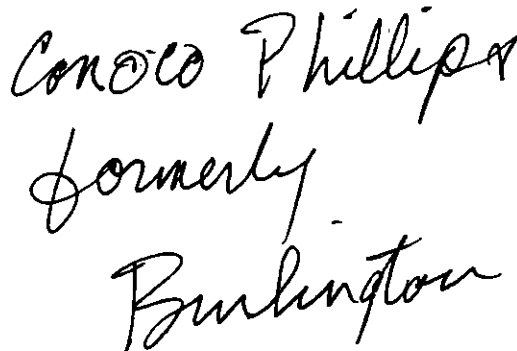 Conoco Phillips
formerly
Burlington